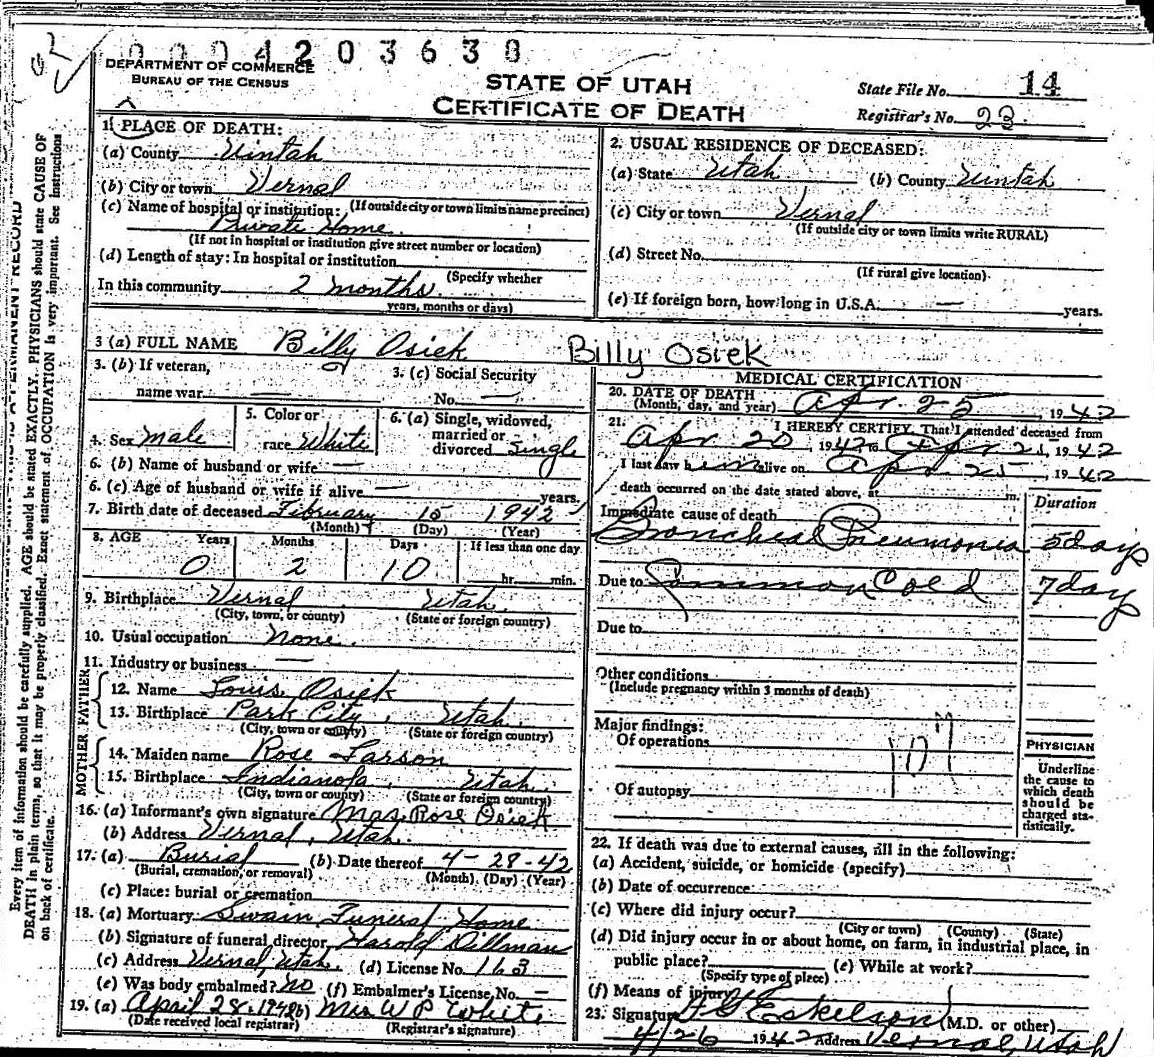 0004203630
DEPARTMENT OF COMMERCE
BUREAU OF THE CENSUS
STATE OF UTAH
CERTIFICATE OF DEATH
State File No. 14
Registrar's No. 23.
Every item of information should be carefully supplied. AGE should be stated EXACTLY. PHYSICIANS should state CAUSE OF
DEATH in plain terms, so that it may be properly classified. Exact statement of OCCUPATION is very important. See instructions
on back of certificate.
1. PLACE OF DEATH:
(a) County Uintah
(b) City or town Vernal
(c) Name of hospital or institution: (If outside city or town limits name precinct)
Private Home
(If not in hospital or institution give street number or location)
(d) Length of stay: In hospital or institution
(Specify whether
In this community 2 months
years, months or days)
2. USUAL RESIDENCE OF DECEASED:
(a) State Utah (b) County Uintah
(c) City or town Vernal
(If outside city or town limits write RURAL)
(d) Street No.
(If rural give location)
(e) If foreign born, how long in U.S.A. — years.
3 (a) FULL NAME Billy Osiek Billy Osiek
3. (b) If veteran,
name war
3. (c) Social Security
No. —
4. Sex Male
5. Color or
race White
6. (a) Single, widowed,
married or
divorced Single
6. (b) Name of husband or wife —
6. (c) Age of husband or wife if alive — years.
7. Birth date of deceased February 15 1942
(Month) (Day) (Year)
8. AGE Years Months Days If less than one day
0 2 10 hr. min.
9. Birthplace Vernal Utah
(City, town, or county) (State or foreign country)
10. Usual occupation None.
11. Industry or business —
FATHER
12. Name Louis Osiek
13. Birthplace Park City, Utah.
(City, town or county) (State or foreign country)
MOTHER
14. Maiden name Rose Larson
15. Birthplace Indianola, Utah
(City, town or county) (State or foreign country)
16. (a) Informant's own signature Mrs. Rose Osiek
(b) Address Vernal, Utah.
17. (a) Burial (b) Date thereof 4-28-42
(Burial, cremation, or removal) (Month) (Day) (Year)
(c) Place: burial or cremation
18. (a) Mortuary Swain Funeral Home
(b) Signature of funeral director Harold Dillman
(c) Address Vernal, Utah. (d) License No. 163
(e) Was body embalmed? No (f) Embalmer's License No. —
19. (a) April 28, 1942 (b) Mrs W P White
(Date received local registrar) (Registrar's signature)
MEDICAL CERTIFICATION
20. DATE OF DEATH
(Month, day, and year) Apr. 25, 1942
21. I HEREBY CERTIFY, That I attended deceased from
Apr 20, 1942 to Apr 25, 1942
I last saw him alive on Apr 25, 1942
death occurred on the date stated above, at m.
Duration
Immediate cause of death
Bronchial Pneumonia 5 days
Due to Common Cold 7 days
Due to
Other conditions
(Include pregnancy within 3 months of death)
Major findings:
Of operations
107
Of autopsy
PHYSICIAN
Underline
the cause to
which death
should be
charged sta-
tistically.
22. If death was due to external causes, fill in the following:
(a) Accident, suicide, or homicide (specify)
(b) Date of occurrence
(c) Where did injury occur?
(City or town) (County) (State)
(d) Did injury occur in or about home, on farm, in industrial place, in
public place? (e) While at work?
(Specify type of place)
(f) Means of injury
23. Signature Eskelson (M.D. or other)
4/26 1942 Address Vernal Utah